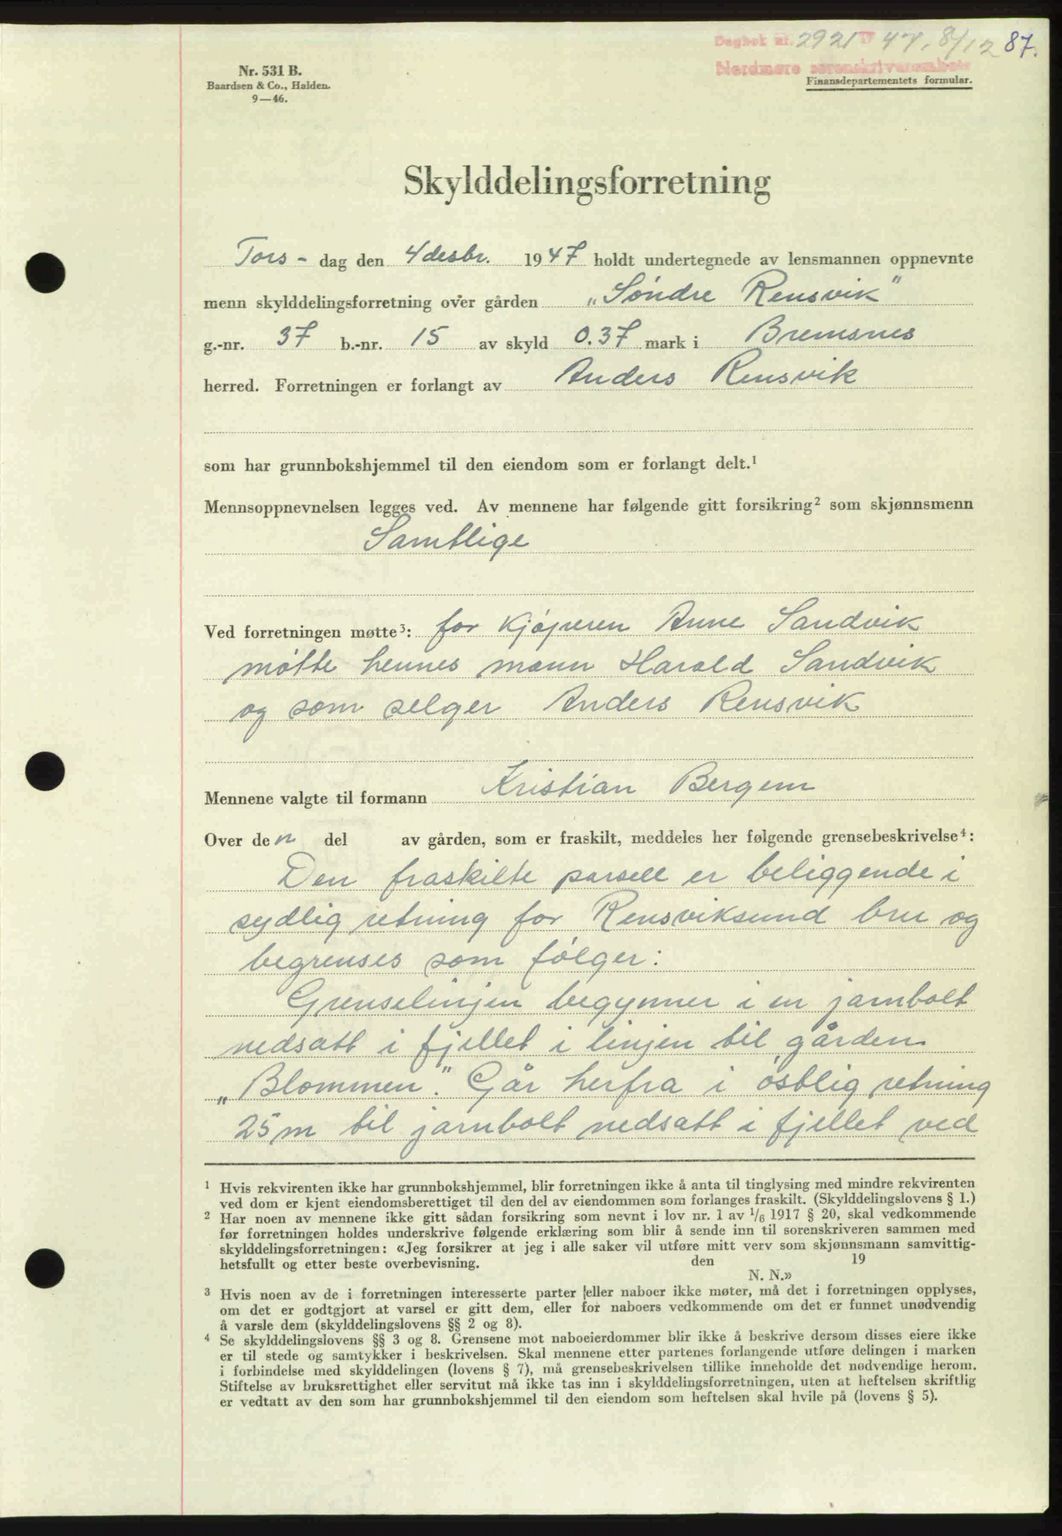 Dagbok nr. 2921 47. 8/12 87.
Nordmøre sorenskriverembete
Nr. 531 B.
Baardsen & Co., Halden.
9—46.
Finansdepartementets formular.
Skylddelingsforretning
Tors- dag den 4 desbr. 1947 holdt undertegnede av lensmannen oppnevnte
menn skylddelingsforretning over gården „Søndre Rensvik”
g.-nr. 37 b.-nr. 15 av skyld 0.37 mark i Bremsnes
herred. Forretningen er forlangt av Anders Rensvik
som har grunnbokshjemmel til den eiendom som er forlangt delt.¹
Mennsoppnevnelsen legges ved. Av mennene har følgende gitt forsikring² som skjønnsmenn
Samtlige
Ved forretningen møtte³: for kjøperen Anne Sandvik
møtte hennes mann Harald Sandvik
og som selger Anders Rensvik
Mennene valgte til formann Kristian Bergem
Over den del av gården, som er fraskilt, meddeles her følgende grensebeskrivelse⁴:
Den fraskilte parsell er beliggende i
sydlig retning for Rensviksund bru og
begrenses som følger:
Grenselinjen begynner i en jarnbolt
nedsatt i fjellet i linjen til gården
„Blommen”. Går herfra i østlig retning
25 m til jarnbolt nedsatt i fjellet ved
¹ Hvis rekvirenten ikke har grunnbokshjemmel, blir forretningen ikke å anta til tinglysing med mindre rekvirenten
ved dom er kjent eiendomsberettiget til den del av eiendommen som forlanges fraskilt. (Skylddelingslovens § 1.)
² Har noen av mennene ikke gitt sådan forsikring som nevnt i lov nr. 1 av 1/6 1917 § 20, skal vedkommende
før forretningen holdes underskrive følgende erklæring som blir å sende inn til sorenskriveren sammen med
skylddelingsforretningen: «Jeg forsikrer at jeg i alle saker vil utføre mitt verv som skjønnsmann samvittig-
hetsfullt og etter beste overbevisning. den 19
N. N.»
³ Hvis noen av de i forretningen interesserte parter eller naboer ikke møter, må det i forretningen opplyses,
om det er godtgjort at varsel er gitt dem, eller for naboers vedkommende om det er funnet unødvendig
å varsle dem (skylddelingslovens §§ 2 og 8).
⁴ Se skylddelingslovens §§ 3 og 8. Grensene mot naboeierdommer blir ikke å beskrive dersom disses eiere ikke
er til stede og samtykker i beskrivelsen. Skal mennene etter partenes forlangende utføre delingen i marken
i forbindelse med skylddelingen (lovens § 7), må grensebeskrivelsen tillike inneholde det nødvendige herom.
Stiftelse av bruksrettighet eller servitut må ikke tas inn i skylddelingsforretningen, uten at heftelsen skriftlig
er vedtatt av den som har grunnbokshjemmel til den eiendom som heftelsen skal hvile på (lovens § 5).